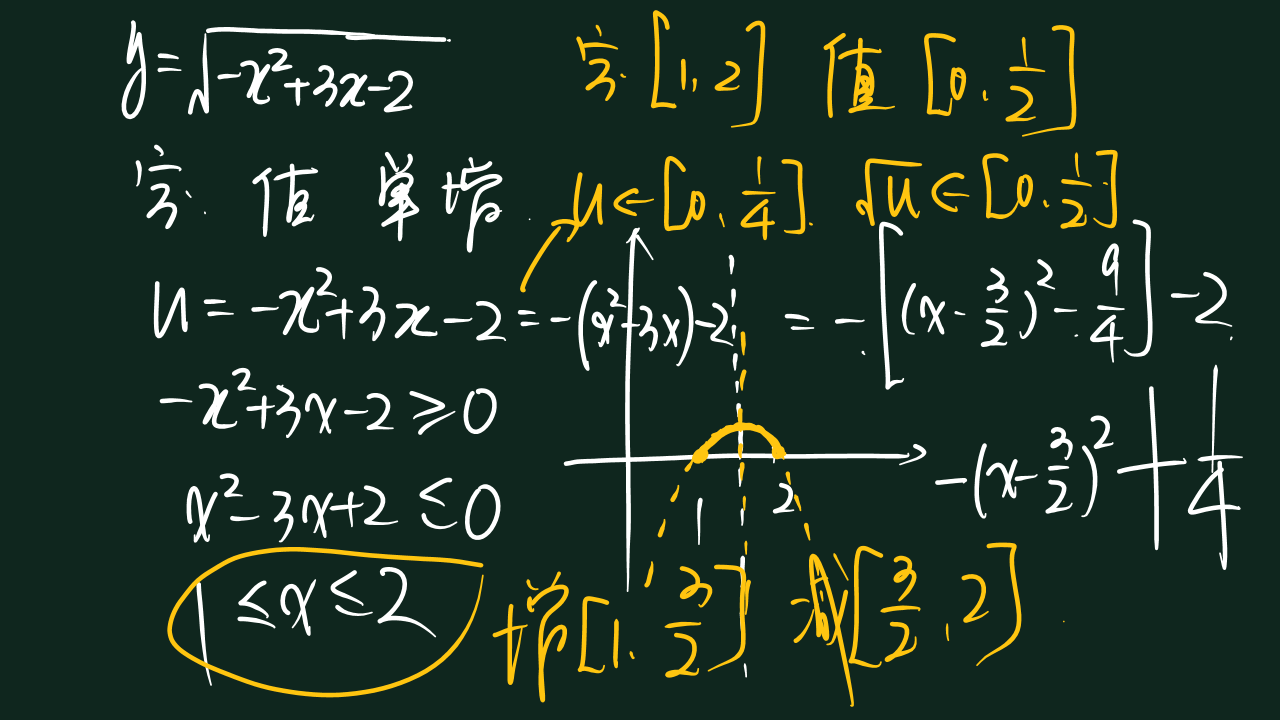 y=√(-x²+3x-2)  定 [1,2]  值 [0,1/2]
定. 值 单增. u∈[0,1/4]. √u∈[0,1/2]
u=-x²+3x-2=-(x²-3x)-2 = -[(x-3/2)²-9/4]-2
-x²+3x-2≥0
x²-3x+2≤0  -(x-3/2)²+1/4
1 2
1≤x≤2  增[1,3/2]  减[3/2,2]